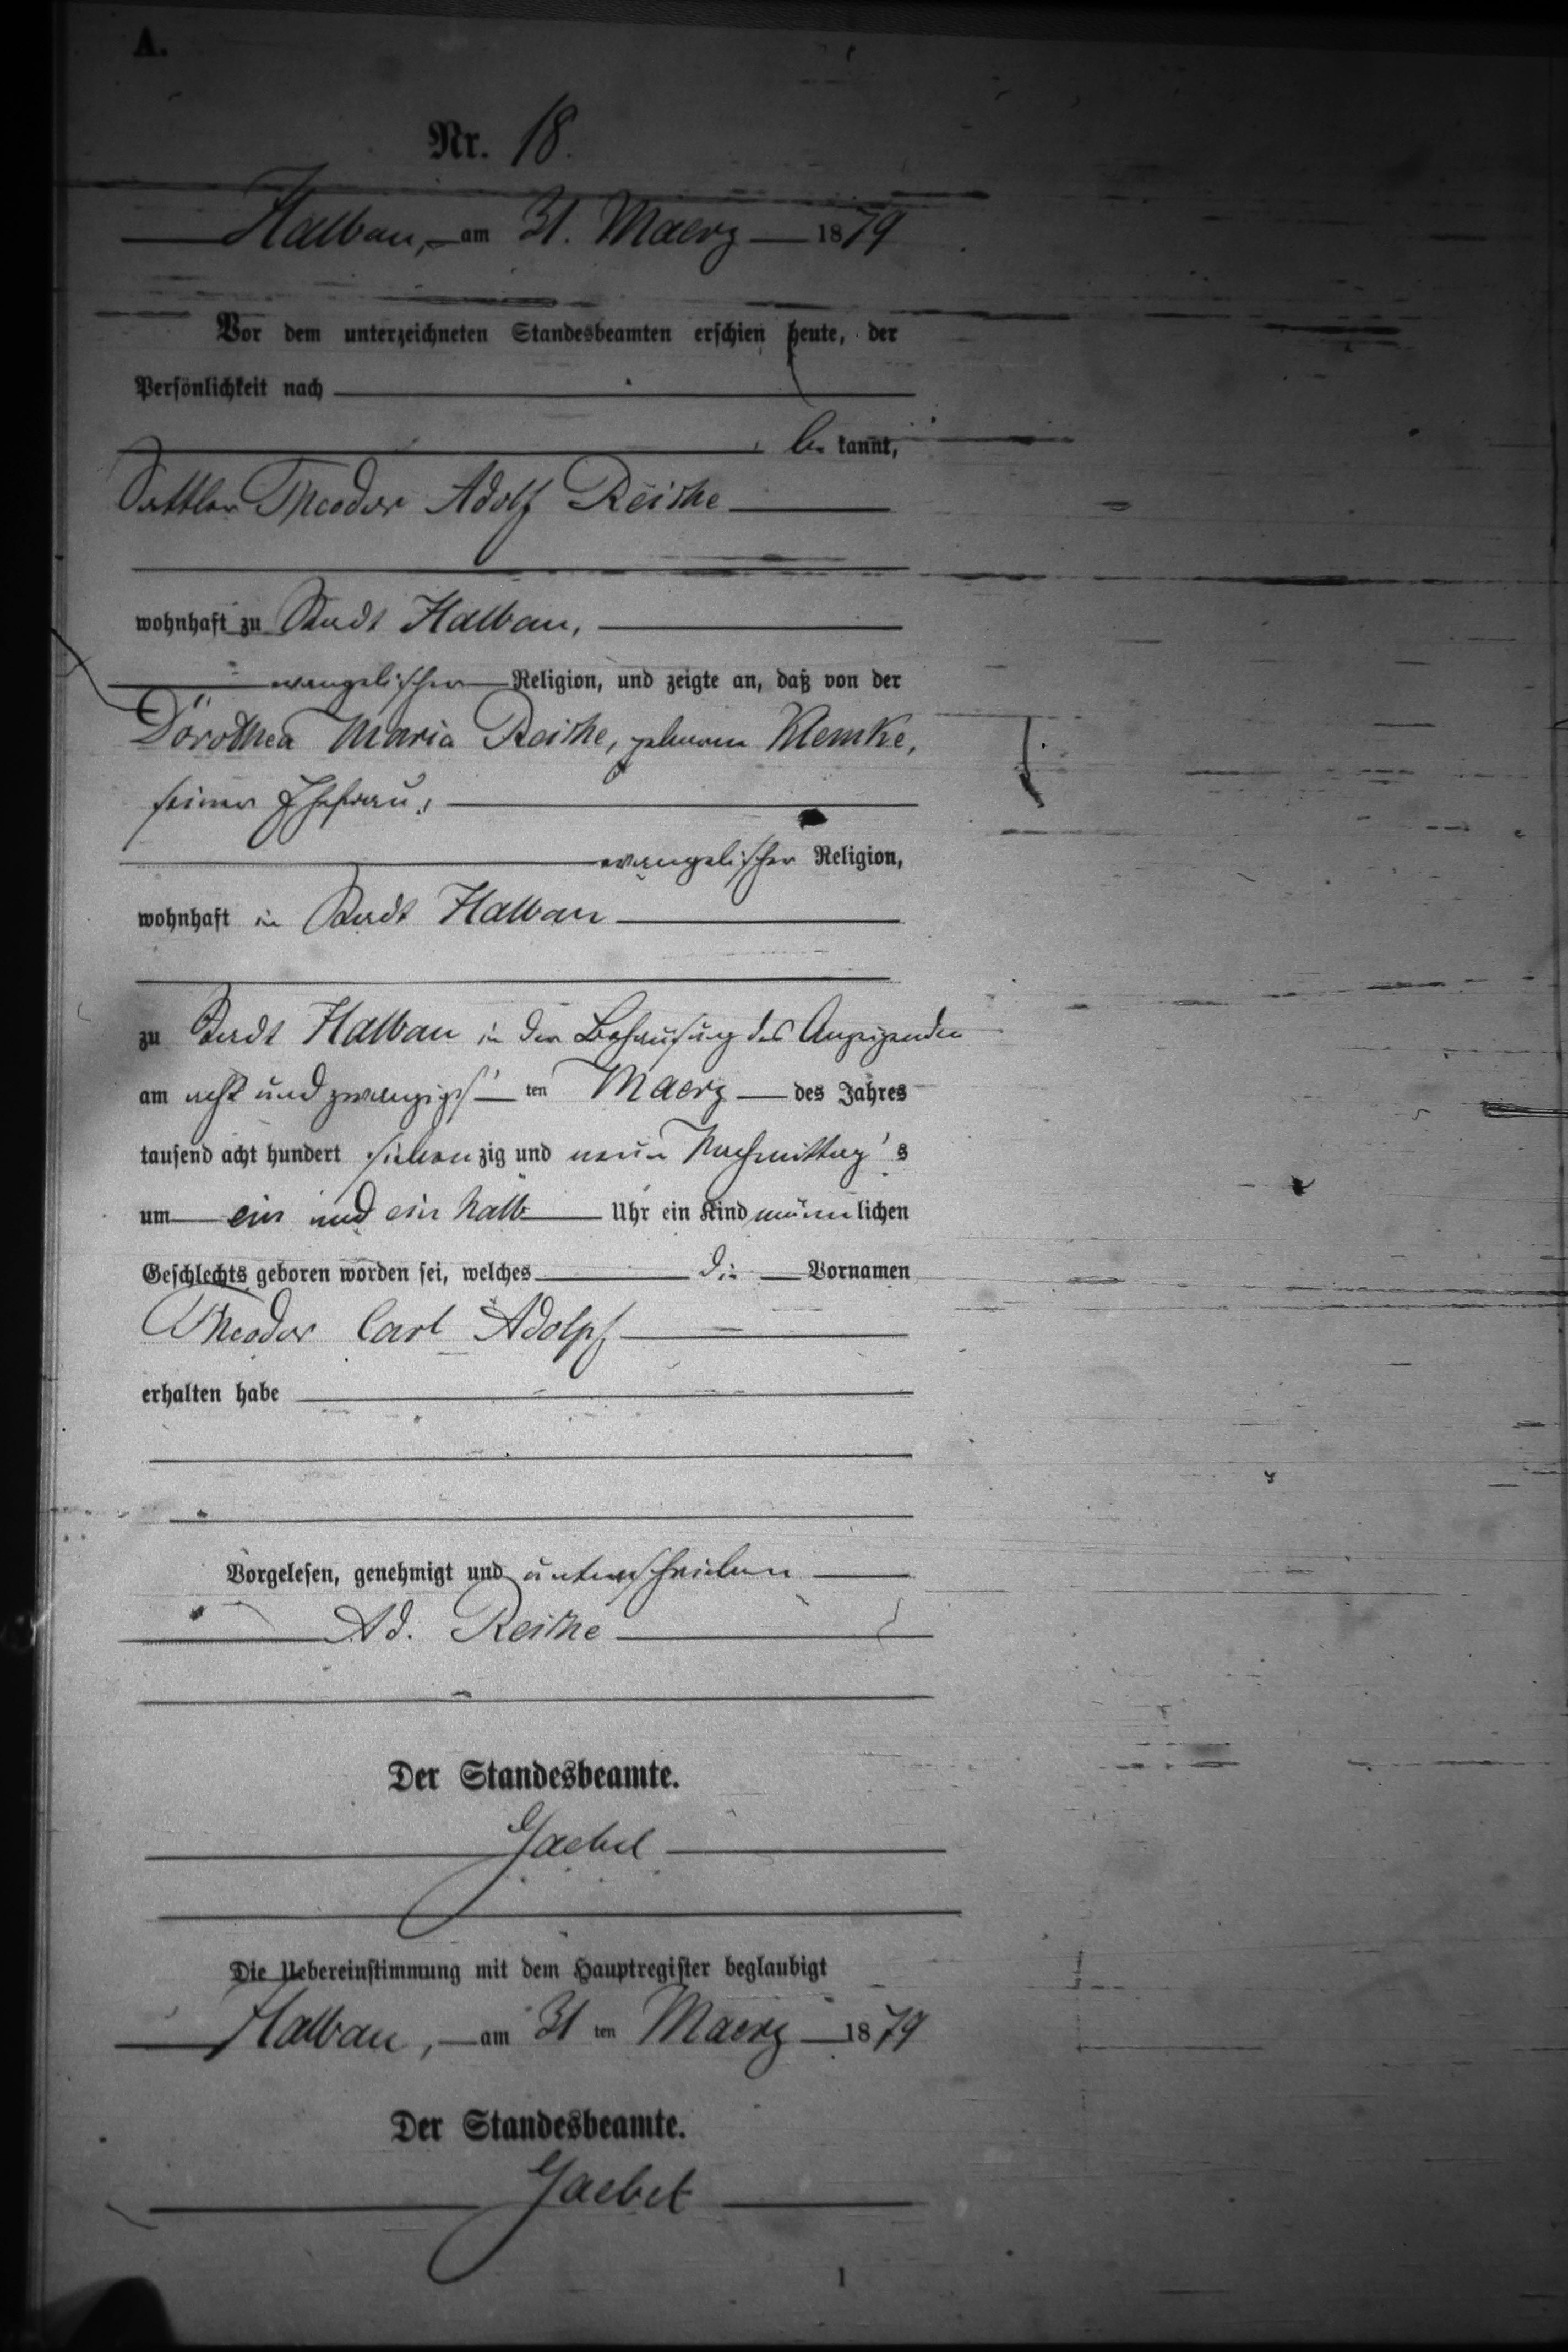 A.
Nr. 18.
Halbau, am 31. Maerz 1879
Vor dem unterzeichneten Standesbeamten erschien heute, der
Persönlichkeit nach
be kannt,
Sattler Theodor Adolf Reiche
wohnhaft zu Stadt Halbau,
evangelischer Religion, und zeigte an, daß von der
Dorothea Maria Reiche, geborene Klemke,
seiner Ehefrau,
evangelischer Religion,
wohnhaft in Stadt Halbau
zu Stadt Halbau in der Behausung des Anzeigenden
am acht und zwanzigs ten Maerz des Jahres
tausend acht hundert sieben zig und neun Nachmittag's
um ein und ein halb Uhr ein Kind männlichen
Geschlechts geboren worden sei, welches die Vornamen
Theodor Carl Adolph
erhalten habe
Vorgelesen, genehmigt und unterschrieben
Ad. Reiche
Der Standesbeamte.
Gaebel
Die Uebereinstimmung mit dem Hauptregister beglaubigt
Halbau, am 31 ten Maerz 1879
Der Standesbeamte.
Gaebel
1